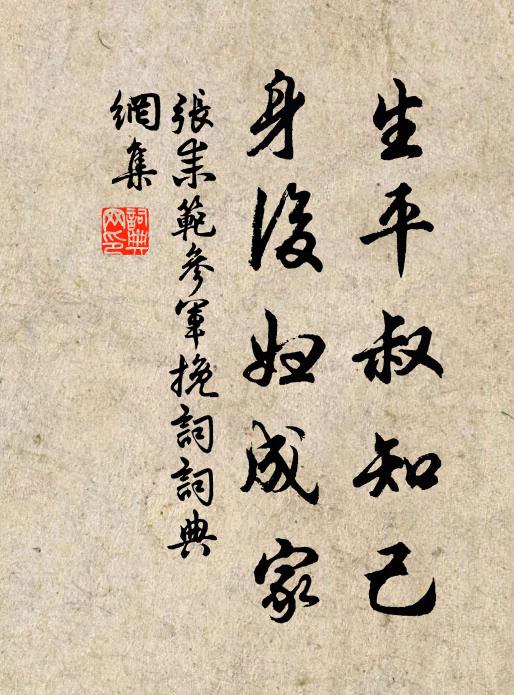 生平叔知己
身後婦成家
張耒範參軍挽詞詞典
網集
詞典
网印